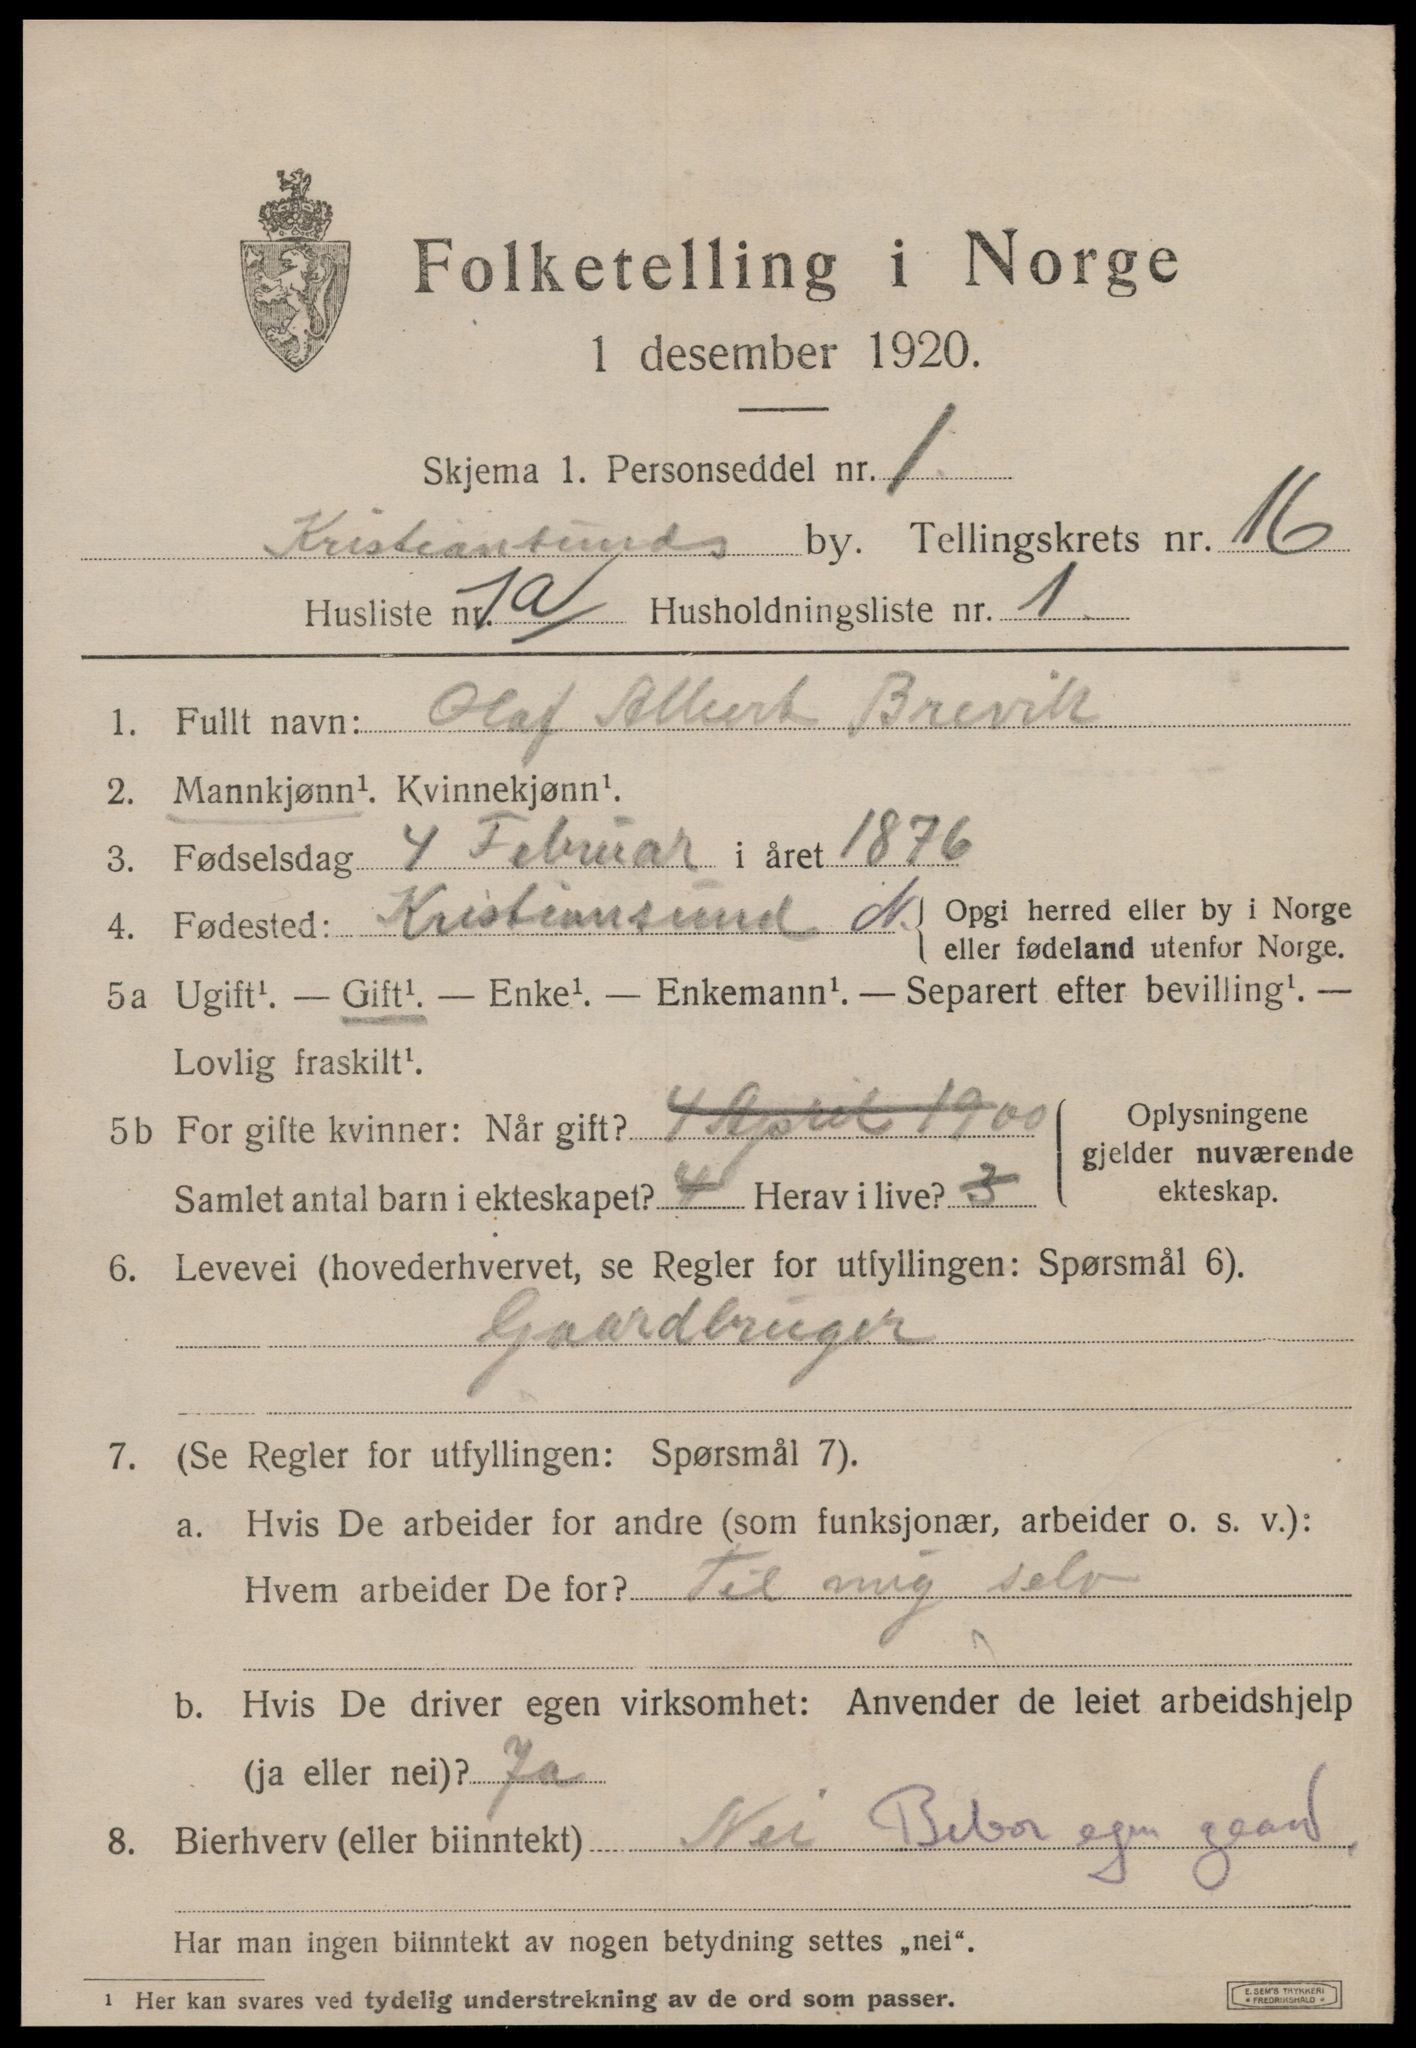 Folketelling i Norge
1 desember 1920.
Skjema 1. Personseddel nr. 1.
Kristiansunds by. Tellingskrets nr. 16
Husliste nr. 1a Husholdningsliste nr. 1.
1. Fullt navn: Olaf Albert Brevik
2. Mannkjønn¹. Kvinnekjønn¹.
3. Fødselsdag 4 Februar i året 1876
4. Fødested: Kristiansund N. { Opgi herred eller by i Norge
eller fødeland utenfor Norge.
5a Ugift¹. — Gift¹. — Enke¹. — Enkemann¹. — Separert efter bevilling¹. —
Lovlig fraskilt¹.
5b For gifte kvinner: Når gift? 4 April 1900
Samlet antal barn i ekteskapet? 4 Herav i live? 3
Oplysningene
gjelder nuværende
ekteskap.
6. Levevei (hovederhvervet, se Regler for utfyllingen: Spørsmål 6).
Gaardbruger
7. (Se Regler for utfyllingen: Spørsmål 7).
a. Hvis De arbeider for andre (som funksjonær, arbeider o. s. v.):
Hvem arbeider De for? Til mig selv
b. Hvis De driver egen virksomhet: Anvender de leiet arbeidshjelp
(ja eller nei)? Ja
8. Bierhverv (eller biinntekt) Nei Bebor egen gaard.
Har man ingen biinntekt av nogen betydning settes „nei“.
¹ Her kan svares ved tydelig understrekning av de ord som passer.
E. SEM'S TRYKKERI
• FREDRIKSHALD •